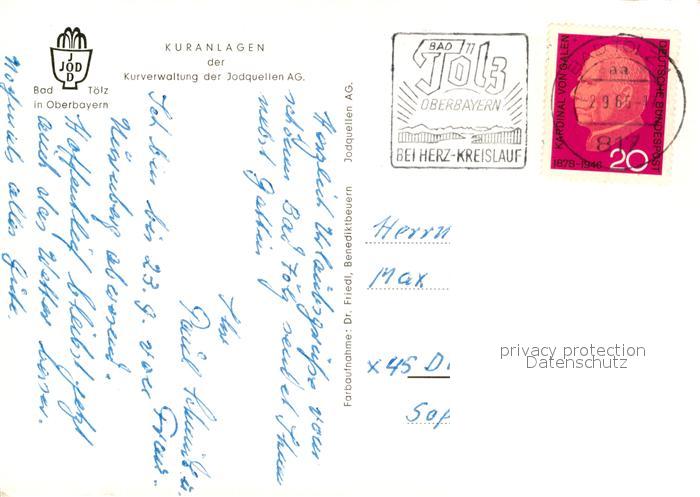 JOD
JOD
Bad Tölz
in Oberbayern
KURANLAGEN
der
Kurverwaltung der Jodquellen AG.
Herzlich Urlaubsgrüße vom
schönen Bad Tölz sendet Ihnen
nebst Gattin
Ihr
Paul Schmidt u. Frau.
Ich bin bis 23.9. von
Nürnberg abwesend.
Hoffentlich bleibt jetzt
auch das Wetter besser.
Nochmals alles Gute.
Farbaufnahme: Dr. Friedl, Benediktbeuern Jodquellen AG.
BAD
Tölz
OBERBAYERN
BEI HERZ-KREISLAUF
KARDINAL VON GALEN
DEUTSCHE BUNDESPOST
1878-1946
20
aa
2.9.66
817
Herrn
Max
x45 D
privacy protection
Datenschutz